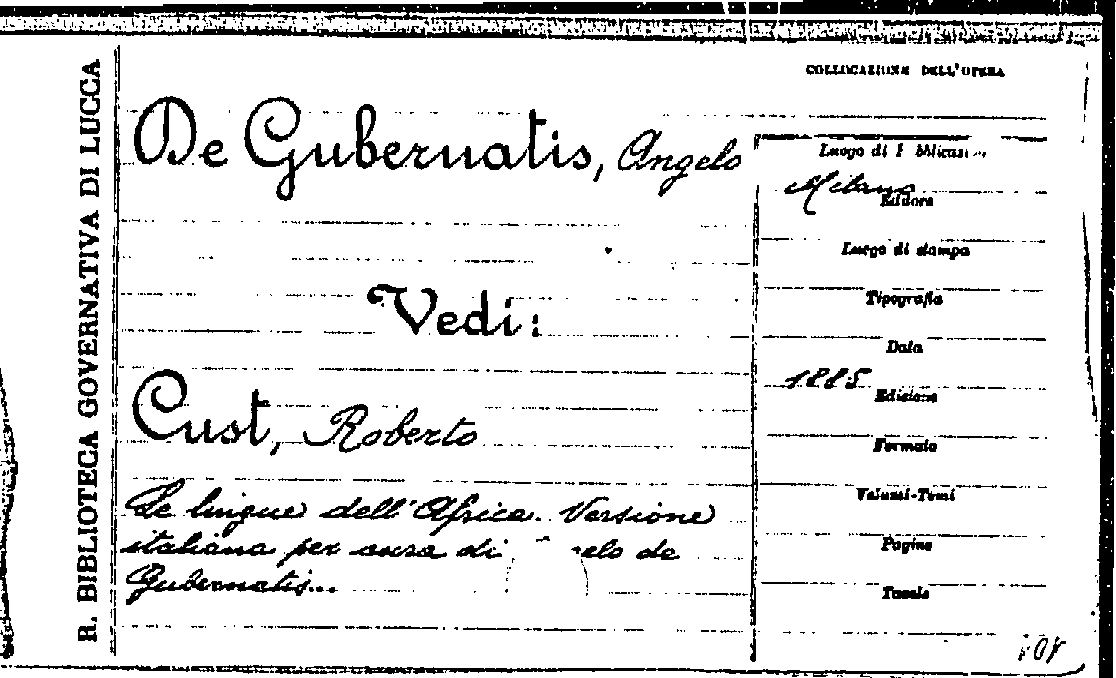 R. BIBLIOTECA GOVERNATIVA DI LUCCA
COLLOCAZIONE DELL'OPERA
De Gubernatis, Angelo
Vedi:
Cust, Roberto
Le lingue dell'Africa. Versione
italiana per cura di elo de
Gubernatis...
Luogo di
Milano
Editore
Luogo di stampa
Tipografia
Data
1885
Edizione
Formato
Volumi-Tomi
Pagine
Tavole